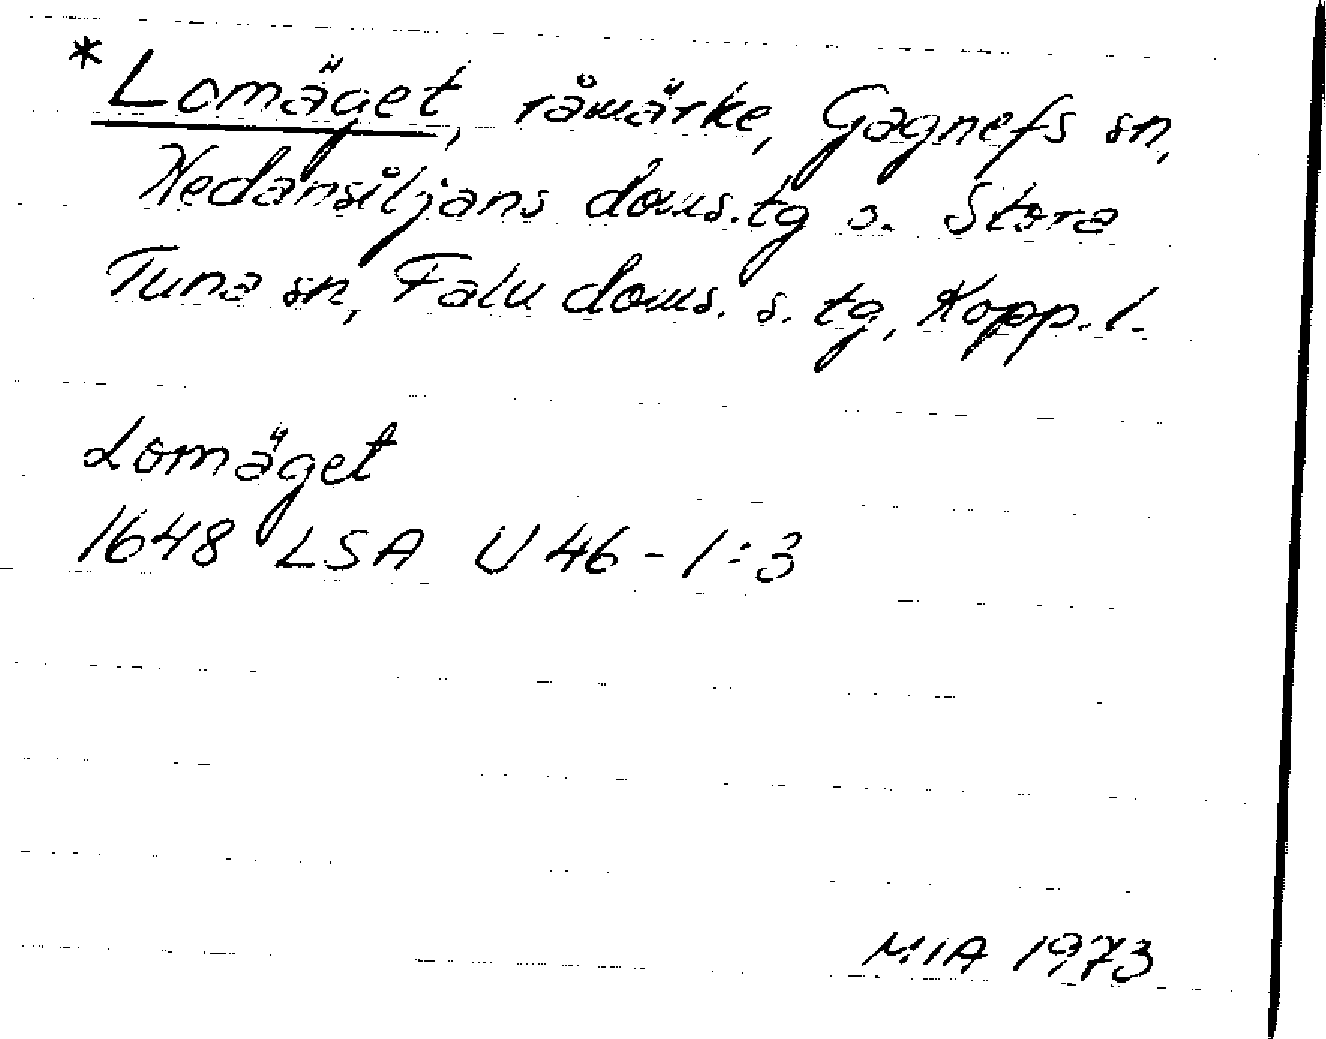 *Lomäget, råmärke, Gagnefs sn,
Nedansiljans doms.tg o. Stora
Tuna sn, Falu doms. s. tg, Kopp. l.
Lomäget
1648 LSA U 46 - 1:3
MIA 1973